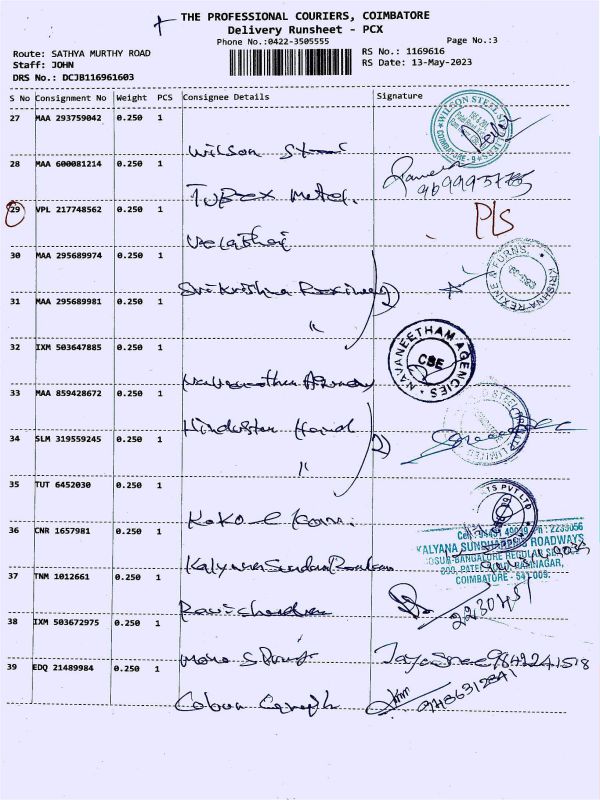 THE PROFESSIONAL COURIERS, COIMBATORE
Delivery Runsheet - PCX
Phone No.:0422-3505555
Page No.:3
Route: SATHYA MURTHY ROAD
RS No.: 1169616
Staff: JOHN
RS Date: 13-May-2023
DRS No.: DCJB116961603
S No Consignment No Weight PCS Consignee Details Signature
27 MAA 293759042 0.250 1
Wilson Steel
WILSON STEEL
COIMBATORE - 9
28 MAA 600081214 0.250 1
Tubex Metal.
Ramesh
29 VPL 217748562 0.250 1
P/S
30 MAA 295689974 0.250 1
Sri Krishna
KRISHNA REXINE & FURNS.
31 MAA 295689981 0.250 1
"
32 IXM 503647885 0.250 1
NAVANEETHAM AGENCIES
CBE
33 MAA 859428672 0.250 1
Hindustan
2)
34 SLM 319559245 0.250 1
"
LIMITED
35 TUT 6452030 0.250 1
TS PVT LTD
36 CNR 1657981 0.250 1
Kalyana Sundaram
KALYANA SUNDHARAM ROADWAYS
HOSUR-BANGALORE REGULAR SERVICE
COIMBATORE - 641 009.
37 TNM 1012661 0.250 1
Ravichandran
2230451
38 IXM 503672975 0.250 1
Jayasree 9842241518
39 EDQ 21489984 0.250 1
9486312841